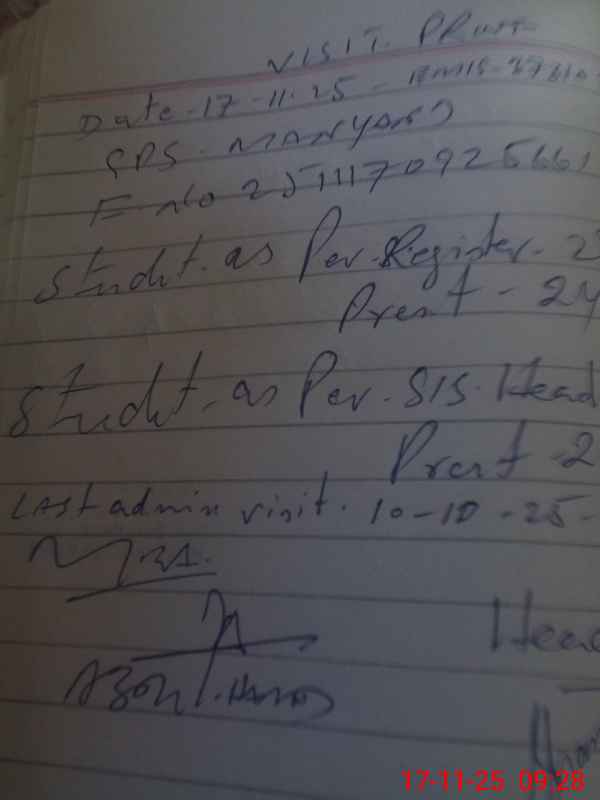 VISIT. PRINT
Date-17-11-25-
GPS. MANYANO
E No 25111709256661
Studnt. as Per. Register - 2
Presnt - 24
Studnt. as Per. SIS. Head
Presnt - 2
LAST admin visit. 10-10-25-
Head
17-11-25 09:28